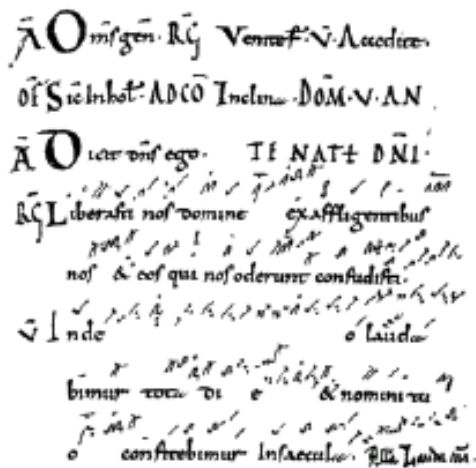 Ā Om̄sgen. RG Venite f. V̄. Accedite.
OF̄ Sic In hol. AD CŌ Inclina. DOM̄. V. AN
Ā Dicit dn̄s ego. TE NAT DN̄I.
RG Liberasti nos domine ex affligentibus
nos & eos qui nos oderunt confudisti.
V̄ In de o lauda
bimur tota di e & nomini tu
o confitebimur In saecula. Lauda